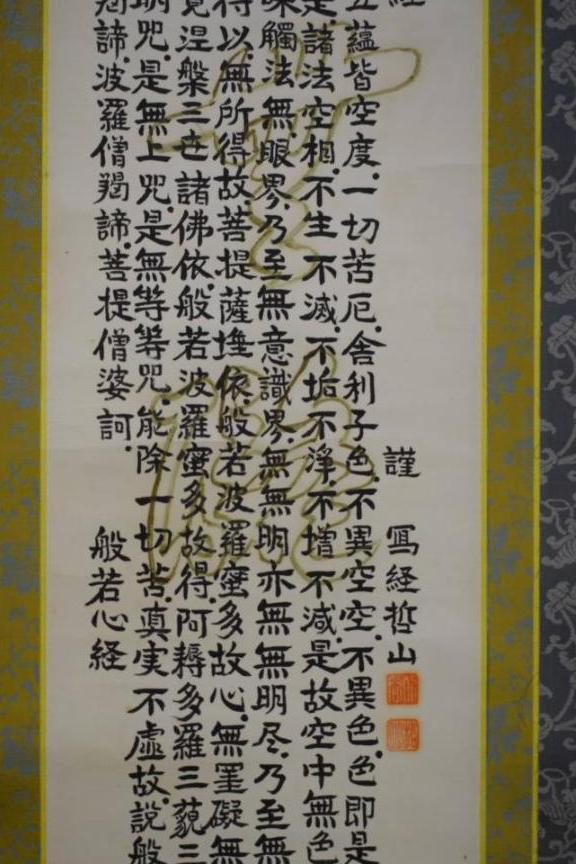 経
謹 寫経哲山
五蘊皆空度.一切苦厄.舎利子色.不異空空.不異色.色即是
是諸法空相.不生不滅.不垢不淨.不増不減.是故空中無色
味觸法無.眼界.乃至無意識界.無無明亦無無明尽.乃至無
得以.無所得故.菩提薩埵.依般若波羅蜜多故心.無罣礙無
竟涅槃三世諸佛依.般若波羅蜜多故得.阿耨多羅三藐三
明咒.是無上咒.是無等等咒.能除一切苦.真実不虚故.説般
羯諦.波羅僧羯諦.菩提僧婆訶.
般若心経